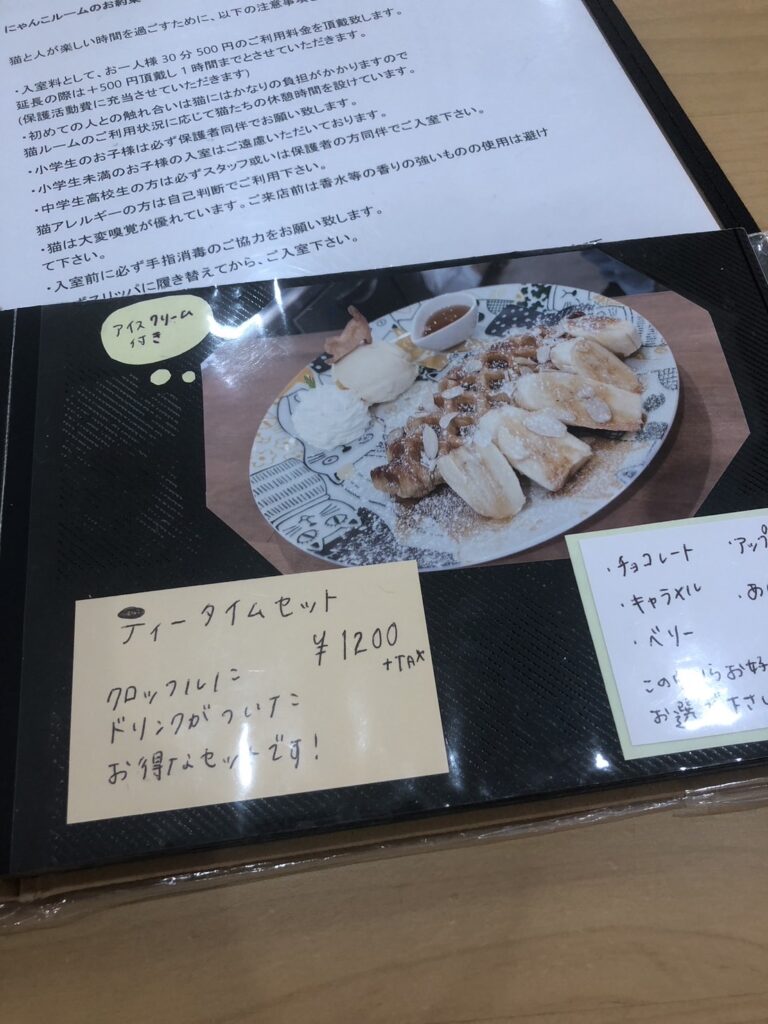 にゃんこルームのお約束
猫と人が楽しい時間を過ごすために、以下の注意事項
・入室料として、お一人様30分500円のご利用料金を頂戴致します。
延長の際は+500円頂戴し1時間までとさせていただきます。
(保護活動費に充当させていただきます)
・初めての人との触れ合いは猫にはかなりの負担がかかりますので
猫ルームのご利用状況に応じて猫たちの休憩時間を設けています。
・小学生のお子様は必ず保護者同伴でお願い致します。
・小学生未満のお子様の入室はご遠慮いただいております。
・中学生高校生の方は必ずスタッフ或いは保護者の方同伴でご入室下さい。
猫アレルギーの方は自己判断でご利用下さい。
・猫は大変嗅覚が優れています。ご来店前は香水等の香りの強いものの使用は避け
て下さい。
・入室前に必ず手指消毒のご協力をお願い致します。
スリッパに履き替えてから、ご入室下さい。
アイスクリーム
付き
ティータイムセット
¥1200
+TAX
クロッフルに
ドリンクがついた
お得なセットです!
・チョコレート ・アップ
・キャラメル ・あ
・ベリー
この中からお好
お選び下さい